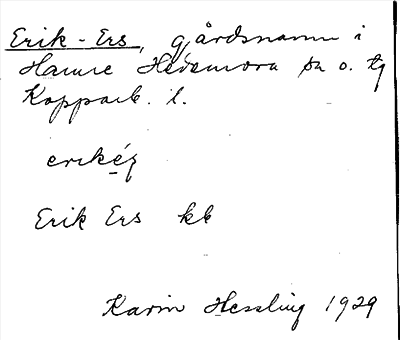 Erik-Ers, gårdsnamn i
Hamre Hedemora sn o. tg
Kopparb. l.
Erik Ers kb
Karin Hessling 1929